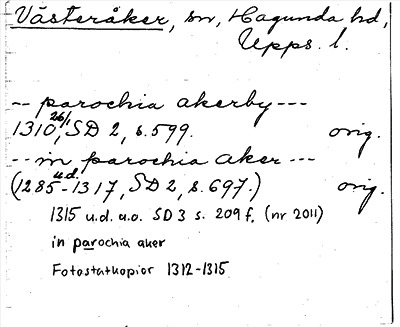 Västeråker, sn, Hagunda hd,
Upps. l.
-- parochia akerby ---
1310 26/1, SD 2, s. 599. orig.
-- in parochia aker ---
(1285-1317, u.d. SD 2, s. 697.) orig.
1315 u.d. u.o. SD 3 s. 209 f. (nr 2011)
in parochia aker
Fotostatkopior 1312-1315